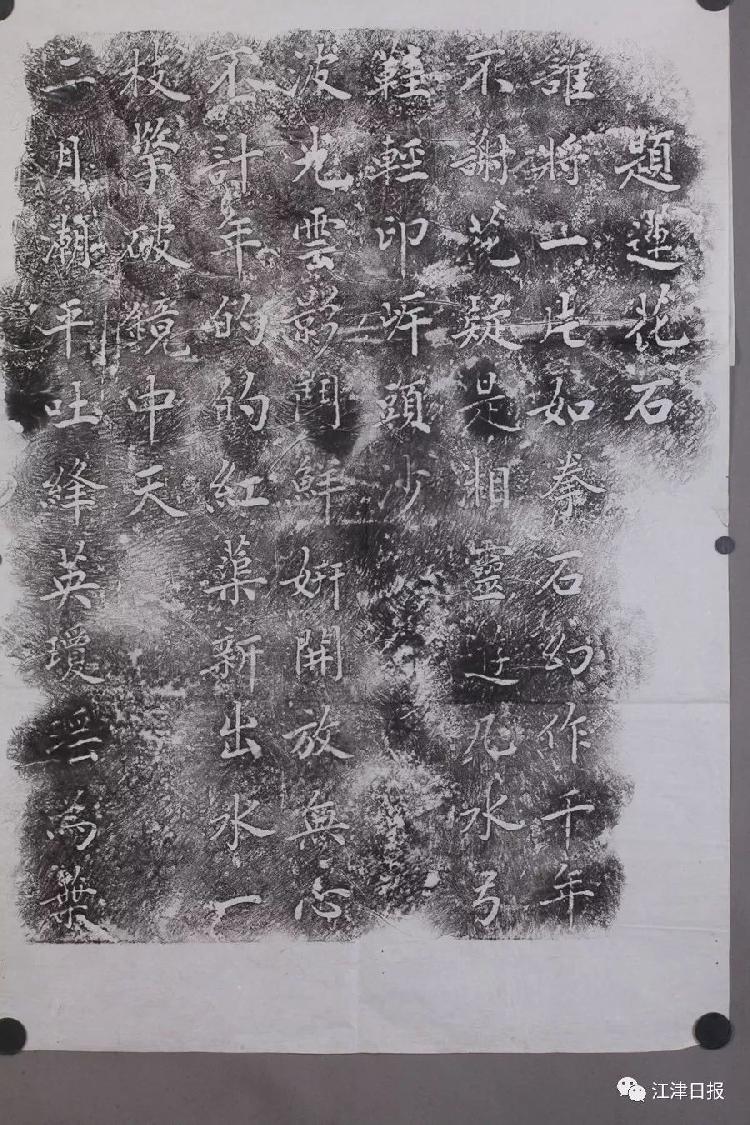 題蓮花石
誰將一片如拳石幻作千年
不謝花疑是湘靈几水弓
鞋輕印岸頭沙
波光雲影鬥鮮妍開放無心
不計年的的紅蕖新出水一
枝擎破鏡中天
二月潮平吐絳英瓊為葉
江津日报